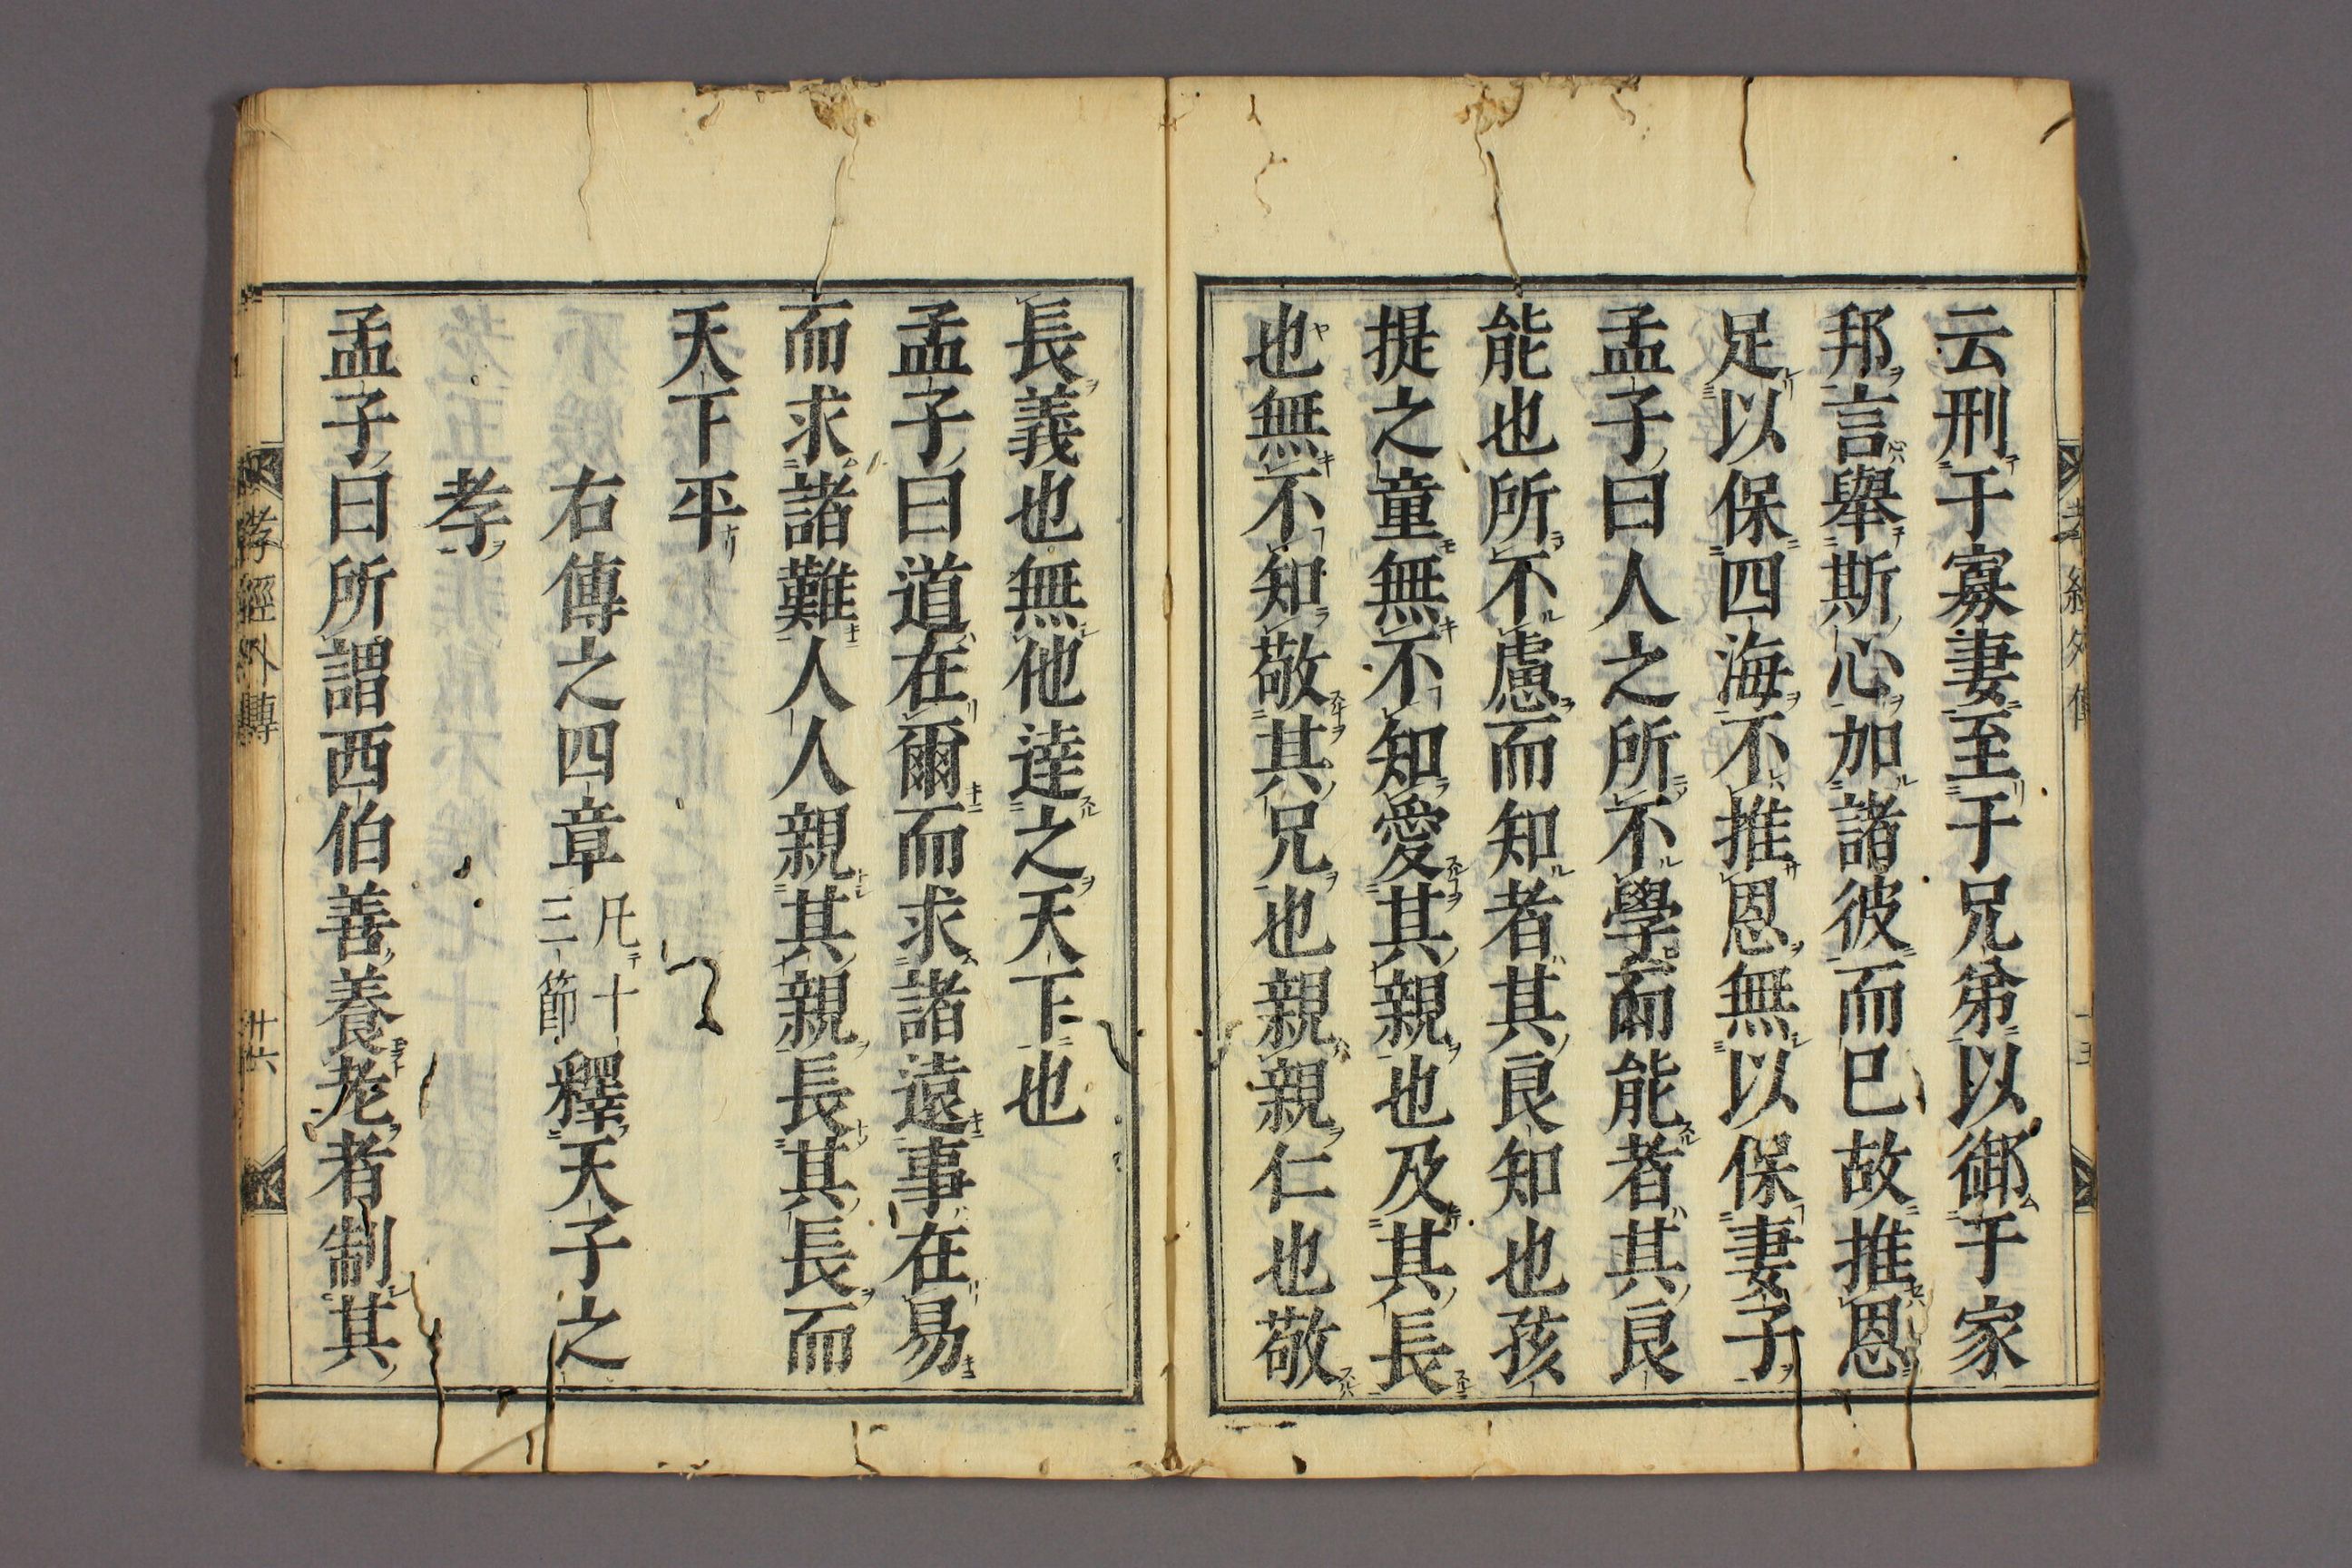 云刑于寡妻至于兄弟以御于家
邦言舉斯心加諸彼而已故推恩
足以保四海不推恩無以保妻子
孟子曰人之所不學而能者其良
能也所不慮而知者其良知也孩
提之童無不知愛其親也及其長
也無不知敬其兄也親親仁也敬
長義也無他達之天下也
孟子曰道在爾而求諸遠事在易
而求諸難人人親其親長其長而
天下平
右傳之四章凡十三節釋天子之
孝
孟子曰所謂西伯善養老者制其
孝經外傳
廿六